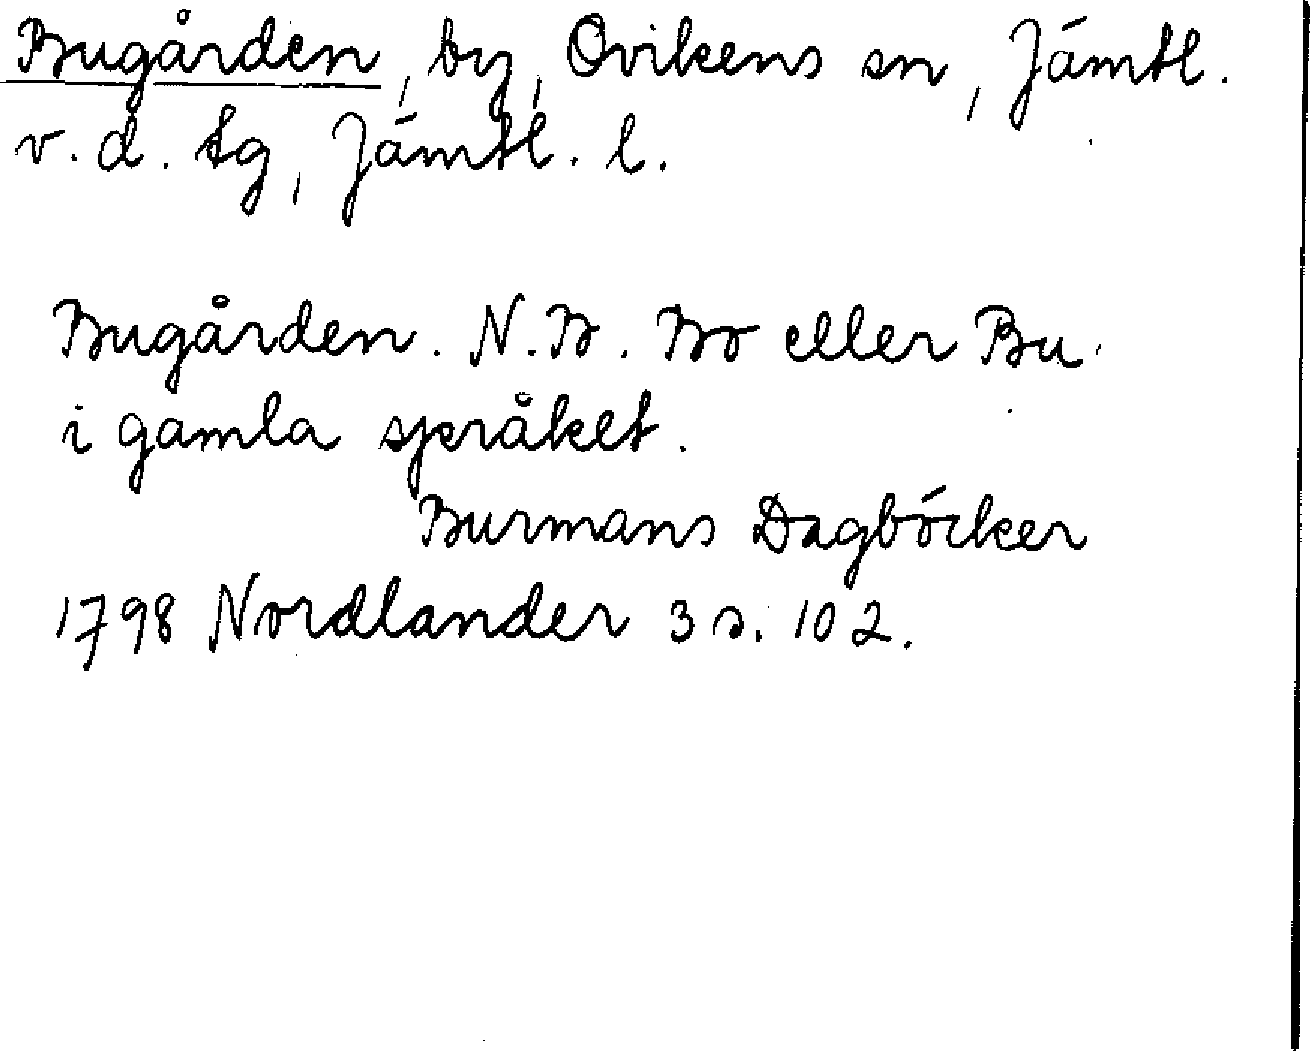 Bugården, by, Ovikens sn, Jämtl.
v. d. tg, Jämtl. l.
Bugården. N.B. Bo eller Bu
i gamla språket.
Burmans Dagböcker
1798 Nordlander 3 s. 102.